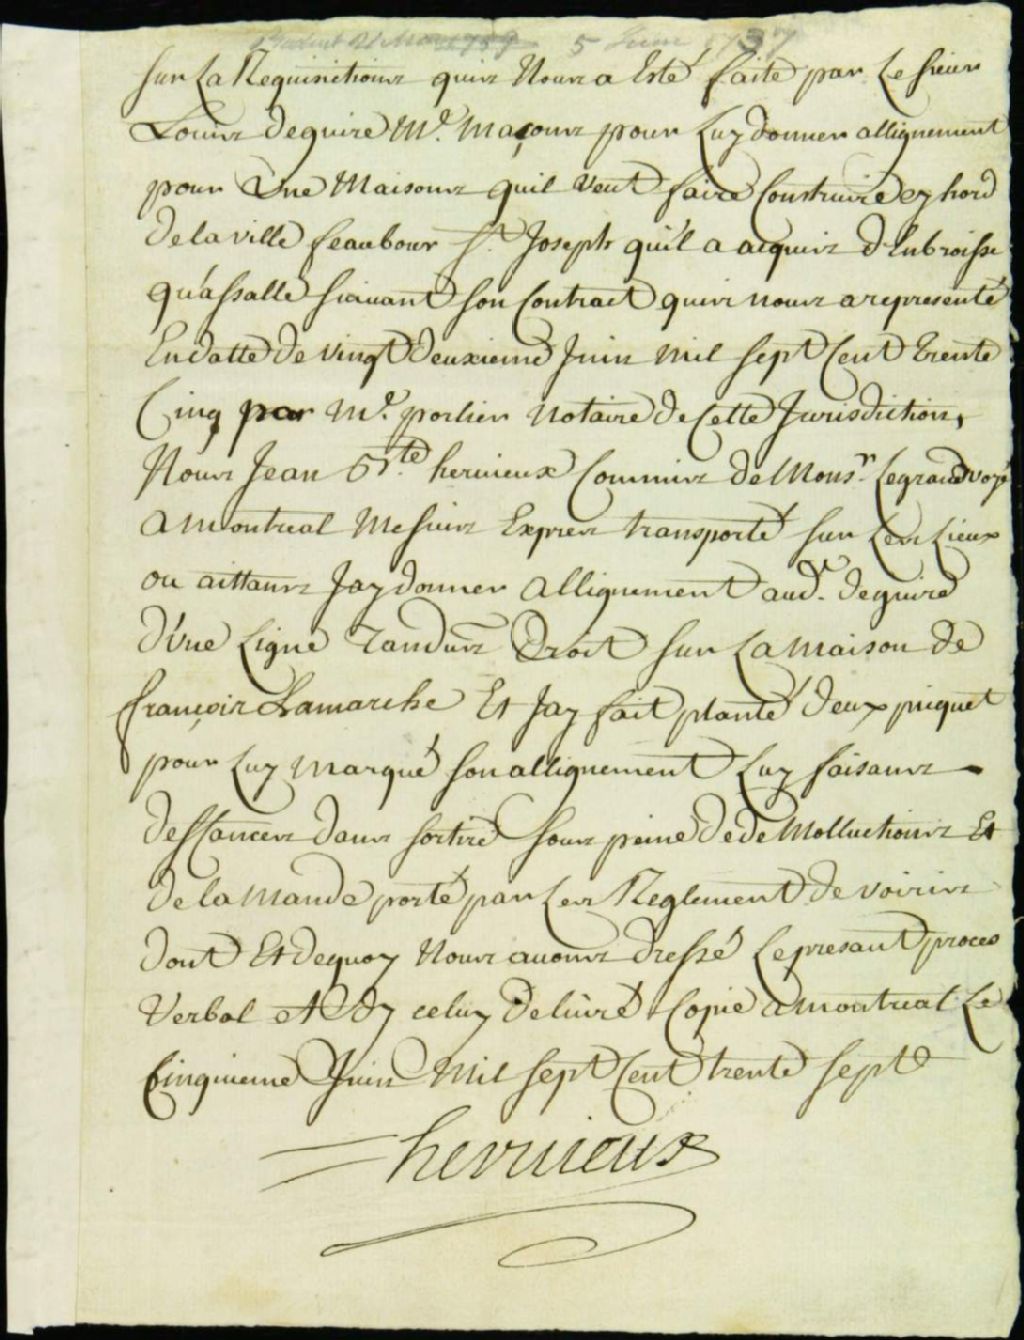 5 Juin 1737
Sur La Requisitions quis Nous a Esté faite par Le Sieur
Louis Deguire Me. Maçons pour Luy donner allignement
pour Une Maisons quil veut faire Construire cy hord
de la ville feaubour St Joseph qu'il a acquis d'Enbroisse
qu'assalle Siauant son Contract quis nous a representé
En datte de vingt deuxieme Juin mil sept Cent Trente
Cinq par Me. porlier Notaire de Cette Jurisdiction,
Nous Jean Bte. hervieux Commis de Monsr. Legrand voyé
a Montreal Me Suis Exprer transporté sur Les Lieux
ou aittans Jay donner allignement aud. deguire
d'Une Ligne Tandus Droit sur La maison de
françois Lamarche Et Jay fait planté deux piquet
pour Luy marqué son allignement Luy faisans
deffances dans sortire sous peine de de Mollictions Et
de la mande porté par Les Reglement de voiris
dont Et dequoy Nous auons dressé Le presant proces
Verbal et dy celuy Deliuré Copie a Montreal Le
Cinquieme Juin Mil sept Cent trente sept
hervieux